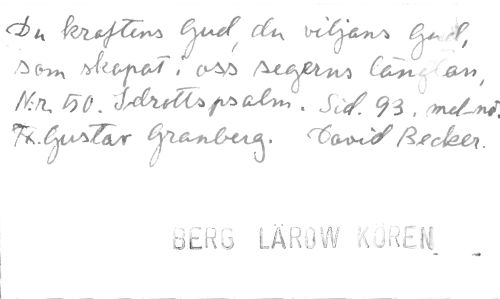 Du kraftens Gud, du viljans Gud,
som skapat i oss segerns längtan,
N:r. 50. Idrottspsalm. Sid. 93. mel-nö.
Tx. Gustav Granberg. David Becker.
BERG LÄROW KÖREN